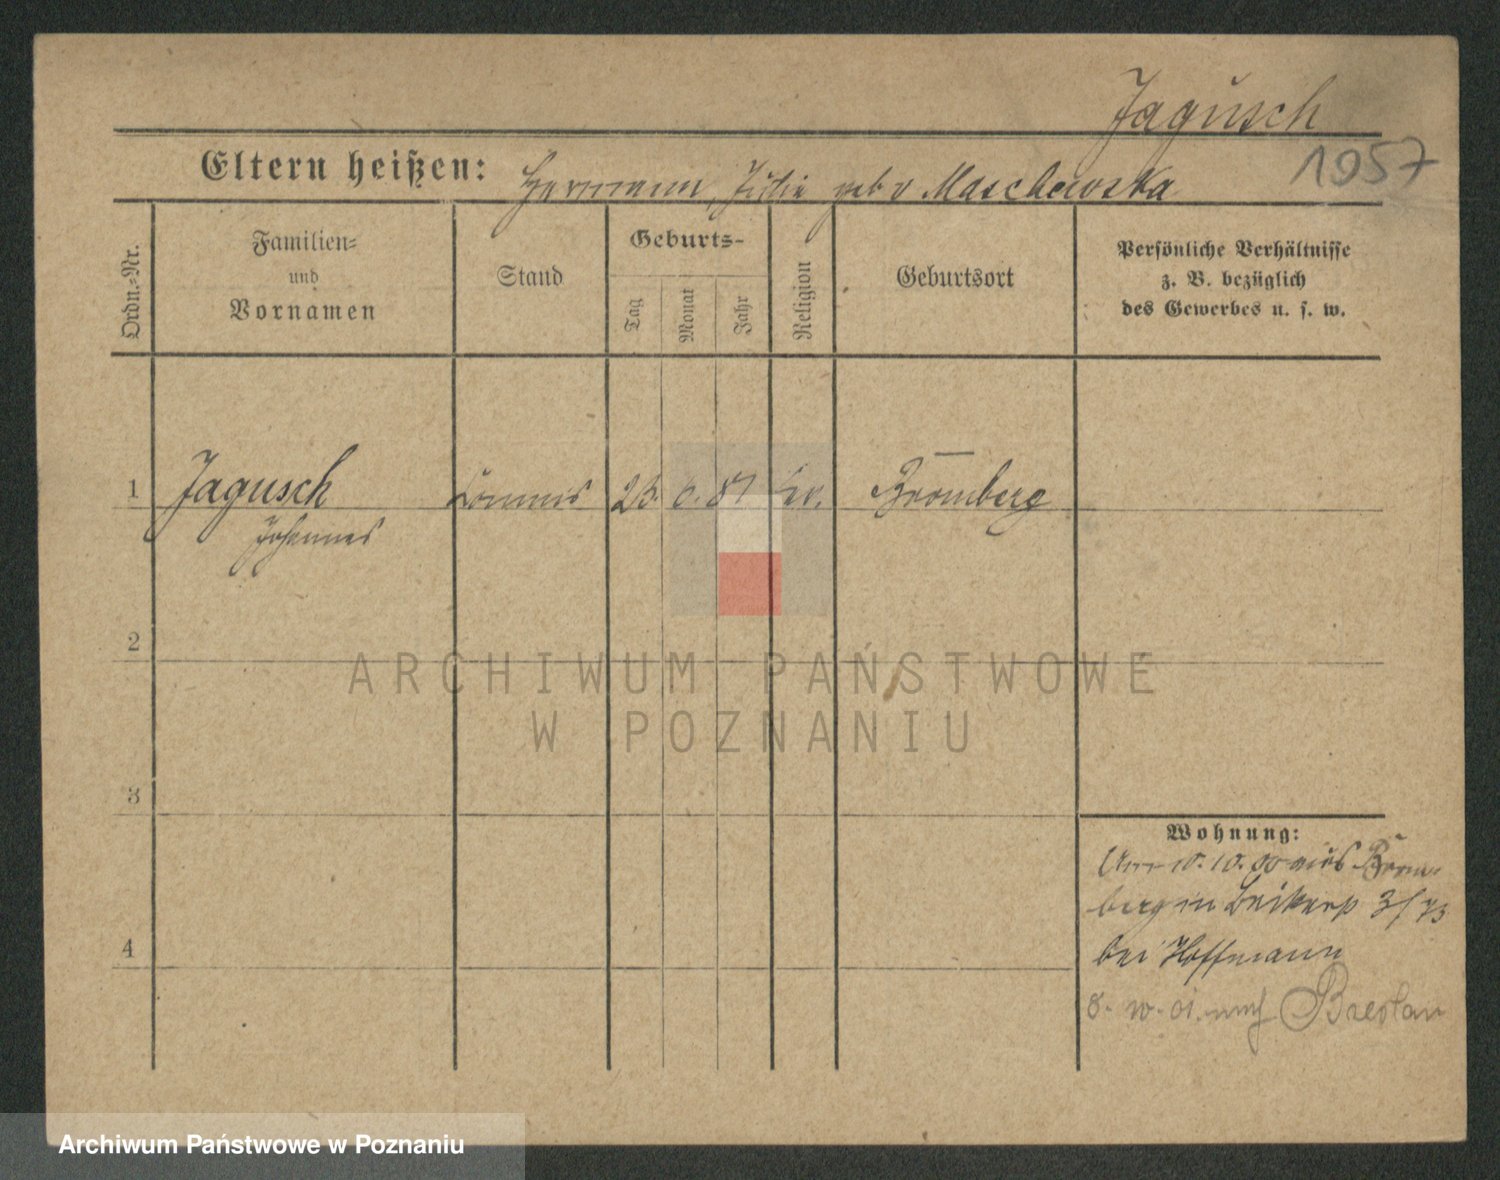 Jagusch
1957
Eltern heißen: Hermann, Julie geb v Maschewska
Ordn.-Nr.
Familien-
und
Vornamen
Stand
Geburts-
Tag
Monat
Jahr
Religion
Geburtsort
Persönliche Verhältnisse
z. B. bezüglich
des Gewerbes u. s. w.
1 Jagusch Commis 23. 6. 81 ev. Bromberg
Johannes
2
3
4
Wohnung:
10. 00 aus Brom-
berg in
bei Hoffmann
01. nach Breslau
ARCHIWUM PAŃSTWOWE
W POZNANIU
Archiwum Państwowe w Poznaniu